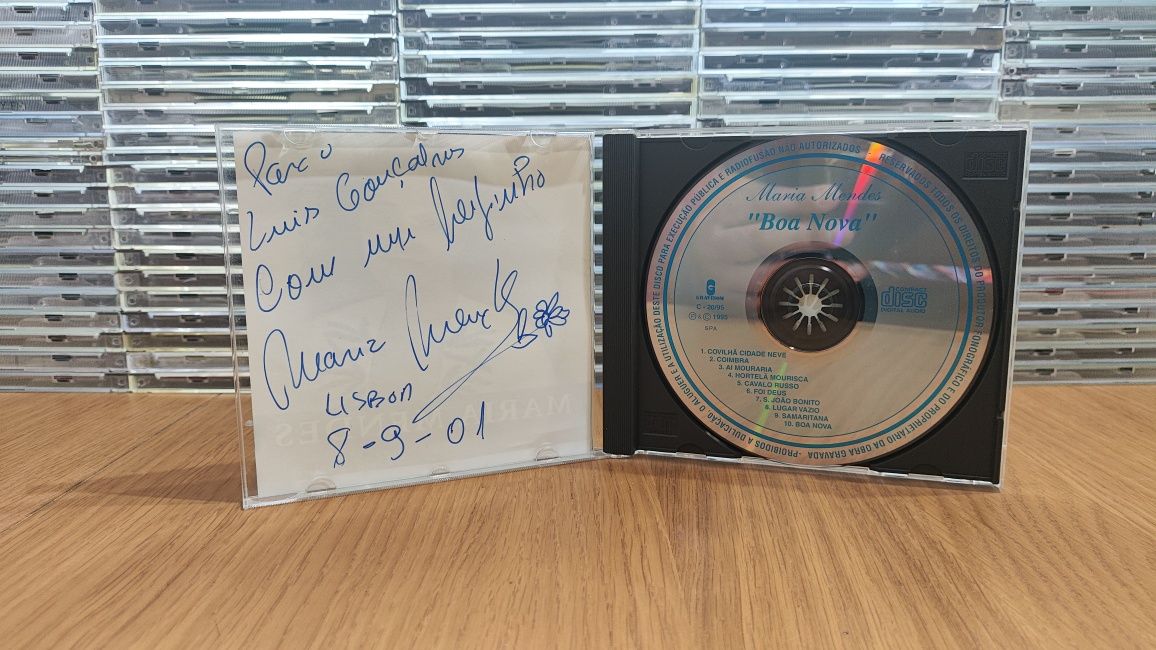 Para o
Luis Gonçalves
Com um beijinho
Maria Mendes
LISBOA
8-9-01
RESERVADOS TODOS OS DIREITOS DO PRODUTOR FONOGRÁFICO E DO PROPRIETÁRIO DA OBRA GRAVADA - PROIBIDOS A DULICAÇÃO, O ALUGUER E A UTILIZAÇÃO DESTE DISCO PARA EXECUÇÃO PÚBLICA E RADIOFUSÃO NÃO AUTORIZADOS
Maria Mendes
"Boa Nova"
C - 20/95
℗ & © 1995
SPA
COMPACT
disc
DIGITAL AUDIO
1. COVILHÃ CIDADE NEVE
2. COIMBRA
3. AI MOURARIA
4. HORTELÃ MOURISCA
5. CAVALO RUSSO
6. FOI DEUS
7. S. JOÃO BONITO
8. LUGAR VAZIO
9. SAMARITANA
10. BOA NOVA